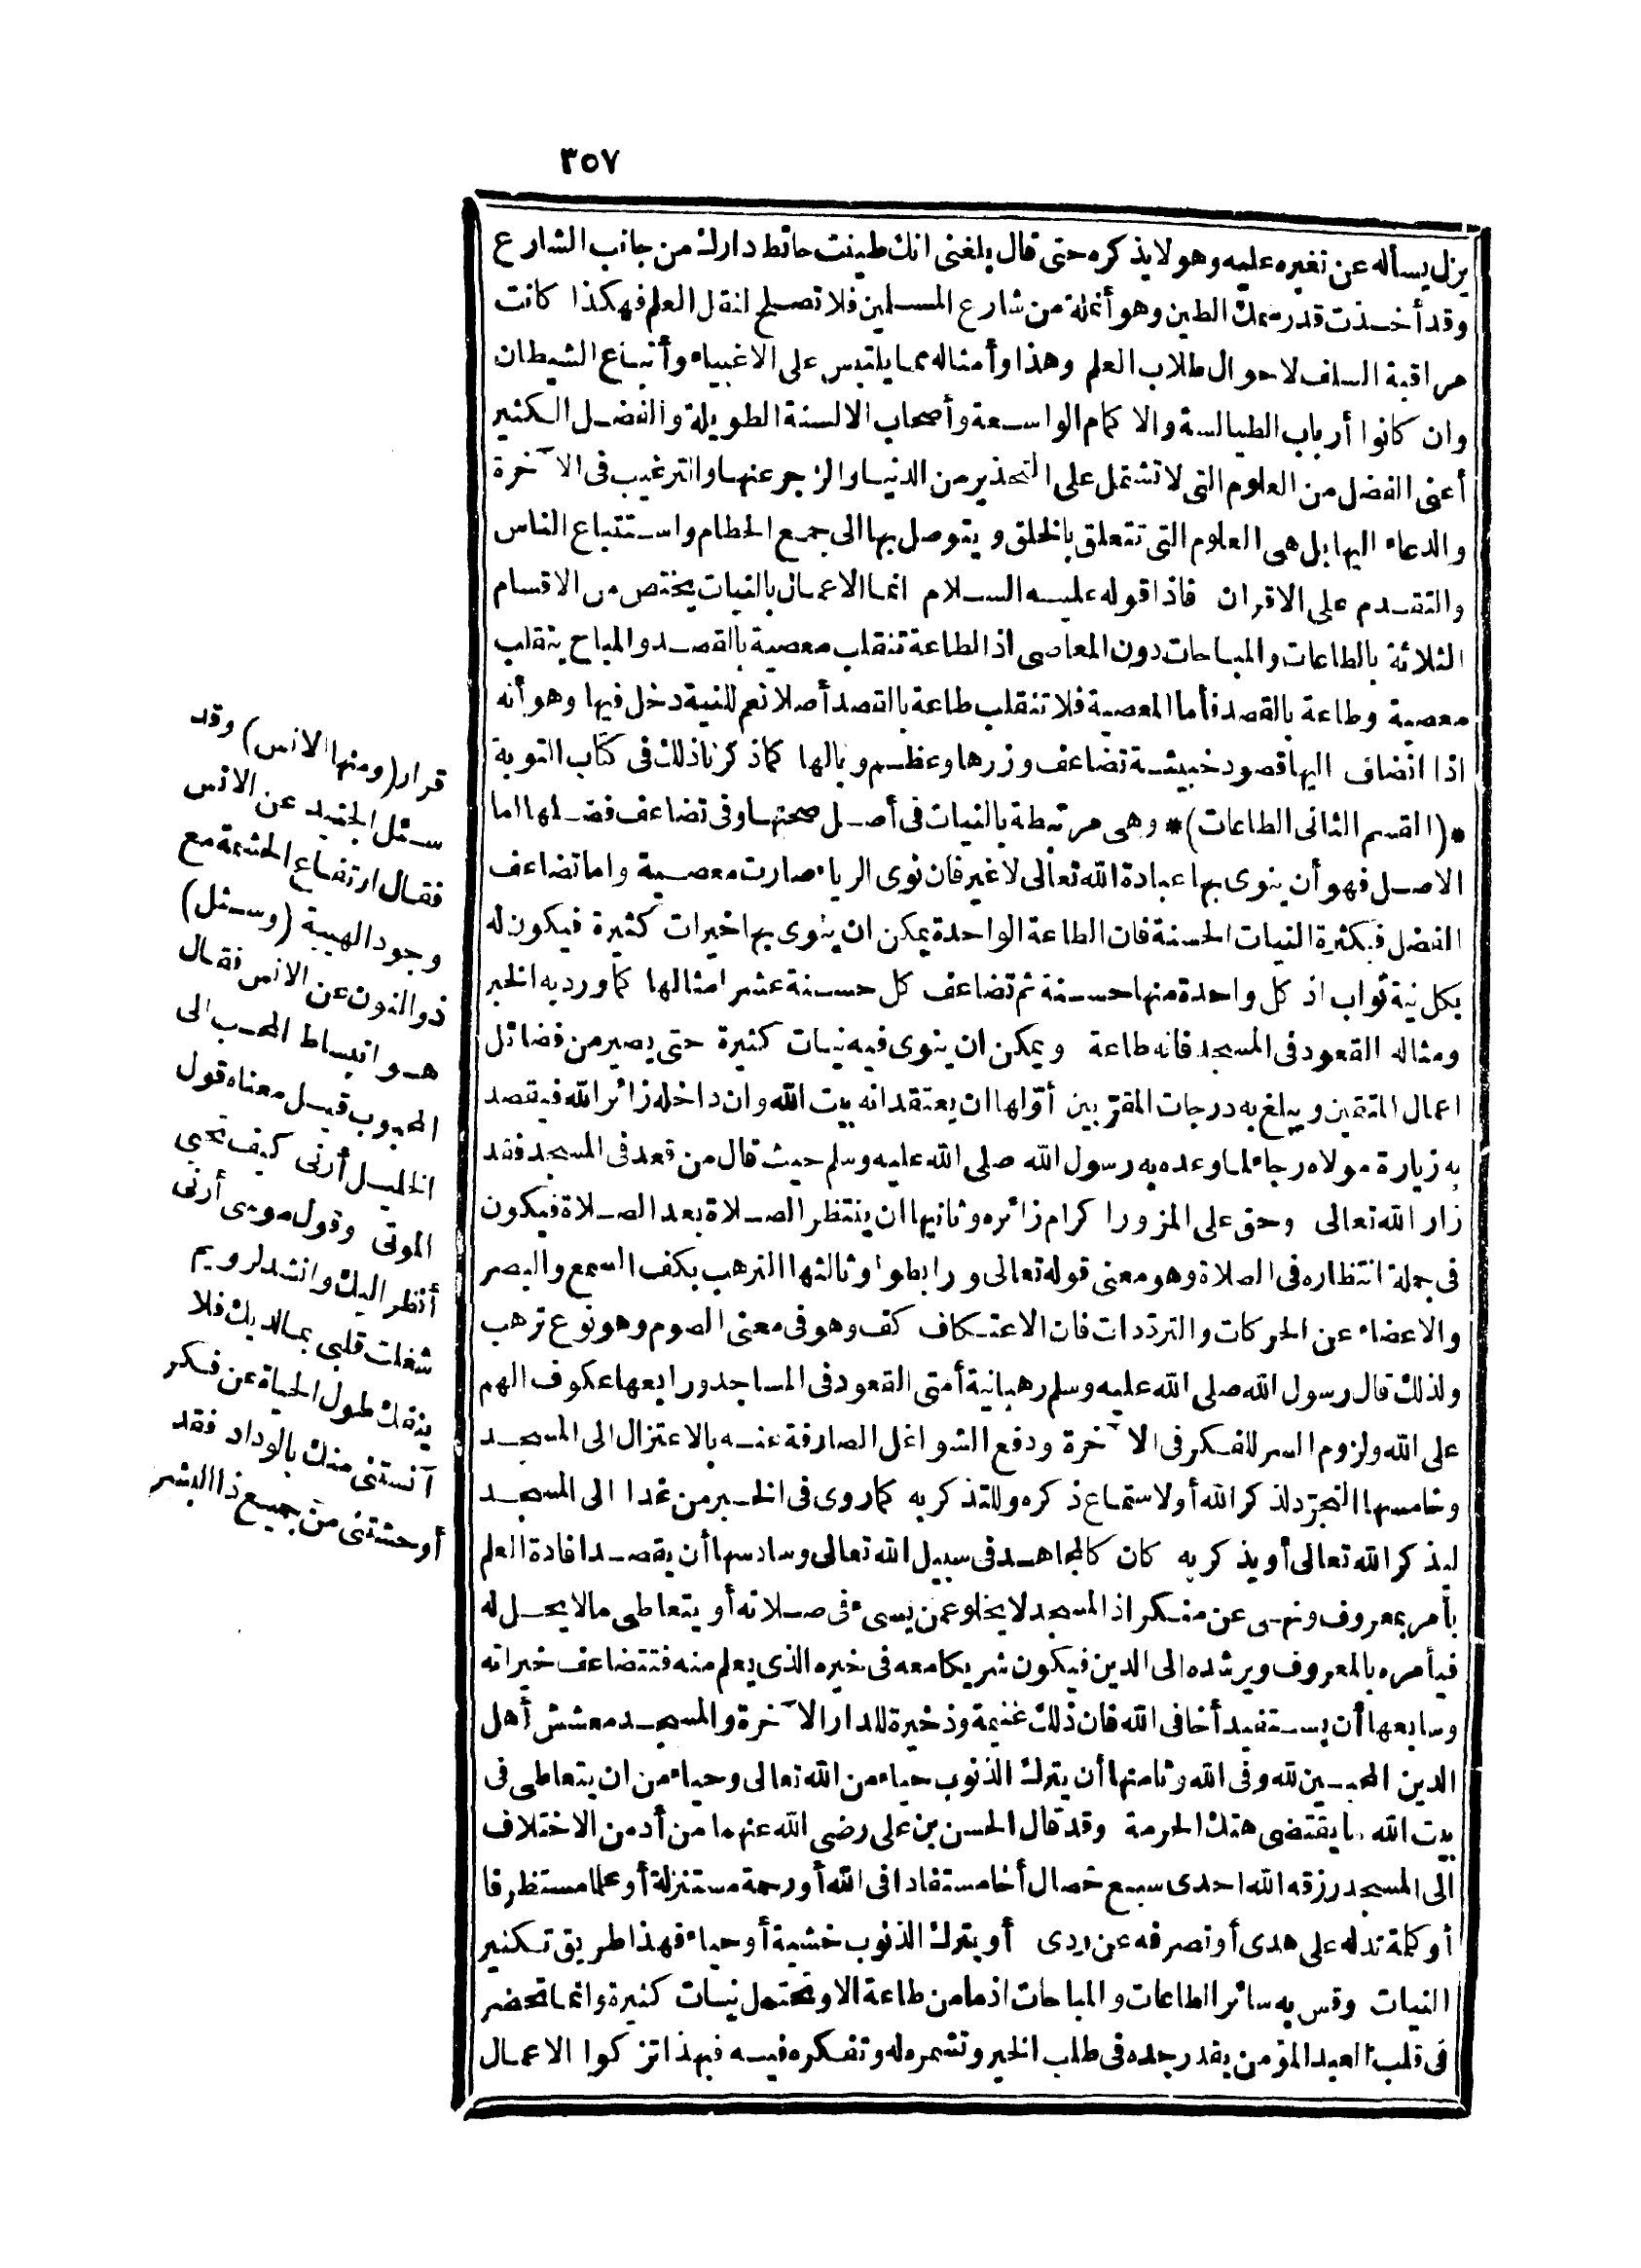 ٣٥٧
يزل يسأله عن تغيره عليه وهو لا يذكره حتى قال بلغنى انك طينت حائط دارك من جانب الشارع
وقد أخذت قدر سمك الطين وهو أنملة من شارع المسلمين فلا تصلح لنقل العلم فهكذا كانت
مراقبة السلف لاحوال طلاب العلم وهذا وأمثاله مما يلتبس على الاغبياء وأتباع الشيطان
وان كانوا أرباب الطيالسة والاكمام الواسعة وأصحاب الالسنة الطويلة والفضل الكثير
أعنى الفضل من العلوم التى لا تشتمل على التحذير من الدنيا والزجر عنها والترغيب فى الآخرة
والدعاء اليها بل هى العلوم التى تتعلق بالخلق ويتوصل بها الى جمع الحطام واستتباع الناس
والتقدم على الاقران فاذا قوله عليه السلام انما الاعمال بالنيات يختص من الاقسام
الثلاثة بالطاعات والمباحات دون المعاصى اذ الطاعة تنقلب معصية بالقصد والمباح ينقلب
معصية وطاعة بالقصد فأما المعصية فلا تنقلب طاعة بالقصد أصلا نعم للنية دخل فيها وهو أنه
اذا انضاف اليها قصود خبيثة تضاعف وزرها وعظم وبالها كما ذكرنا ذلك فى كتاب التوبة
*(القسم الثانى الطاعات)* وهى مرتبطة بالنيات فى أصل صحتها وفى تضاعف فضلها اما
الاصل فهو أن ينوى بها عبادة الله تعالى لا غير فان نوى الرياء صارت معصية واما تضاعف
الفضل فبكثرة النيات الحسنة فان الطاعة الواحدة يمكن ان ينوى بها خيرات كثيرة فيكون له
بكل نية ثواب اذ كل واحدة منها حسنة ثم تضاعف كل حسنة عشر امثالها كما ورد به الخبر
ومثاله القعود فى المسجد فانه طاعة ويمكن ان ينوى فيه نيات كثيرة حتى يصير من فضائل
اعمال المتقين ويبلغ به درجات المقرّبين أوّلها ان يعتقد انه بيت الله وان داخله زائر الله فيقصد
به زيارة مولاه رجاء لما وعده به رسول الله صلى الله عليه وسلم حيث قال من قعد فى المسجد فقد
زار الله تعالى وحق على المزور اكرام زائره وثانيها ان ينتظر الصلاة بعد الصلاة فيكون
فى جملة انتظاره فى الصلاة وهو معنى قوله تعالى ورابطوا وثالثها الترهب بكف السمع والبصر
والاعضاء عن الحركات والتردّدات فان الاعتكاف كف وهو فى معنى الصوم وهو نوع ترهب
ولذلك قال رسول الله صلى الله عليه وسلم رهبانية أمتى القعود فى المساجد ورابعها عكوف الهم
على الله ولزوم السر للفكر فى الآخرة ودفع الشواغل الصارفة عنه بالاعتزال الى المسجد
وخامسها التجرّد لذكر الله أو لاستماع ذكره وللتذكر به كما روى فى الخبر من غدا الى المسجد
ليذكر الله تعالى أو يذكر به كان كالمجاهد فى سبيل الله تعالى وسادسها أن يقصد افادة العلم
بأمر بمعروف ونهى عن منكر اذ المسجد لا يخلو عمن يسىء فى صلاته أو يتعاطى ما لا يحل له
فيأمره بالمعروف ويرشده الى الدين فيكون شريكا معه فى خيره الذى يعلم منه فتتضاعف خيراته
وسابعها أن يستفيد أخا فى الله فان ذلك غنيمة وذخيرة للدار الآخرة والمسجد معشش أهل
الدين المحبين لله وفى الله وثامنها أن يترك الذنوب حياء من الله تعالى وحياء من ان يتعاطى فى
بيت الله ما يقتضى هتك الحرمة وقد قال الحسن بن على رضى الله عنهما من أدمن الاختلاف
الى المسجد رزقه الله احدى سبع خصال أخا مستفادا فى الله أو رحمة مستنزلة أو علما مستظرفا
أو كلمة تدله على هدى أو تصرفه عن ردى أو يترك الذنوب خشية أو حياء فهذا طريق تكثير
النيات وقس به سائر الطاعات والمباحات اذ ما من طاعة الا وتحتمل نيات كثيرة وانما تحضر
فى قلب العبد المؤمن بقدر جده فى طلب الخير وتشمره له وتفكره فيه فبهذا تزكوا الاعمال
قرار (ومنها الانس) وقد
سئل الجنيد عن الانس
فقال ارتفاع الحشمة مع
وجود الهيبة (وسئل)
ذو النون عن الانس فقال
هو انبساط المحب الى
المحبوب قيل معناه قول
الخليل أرنى كيف تحيى
الموتى وقول موسى أرنى
أنظر اليك وانشد لرويم
شغلت قلبى بما لديك فلا
ينفك طول الحياة عن فكر
آنستنى منك بالوداد فقد
أوحشتنى من جميع ذا البشر